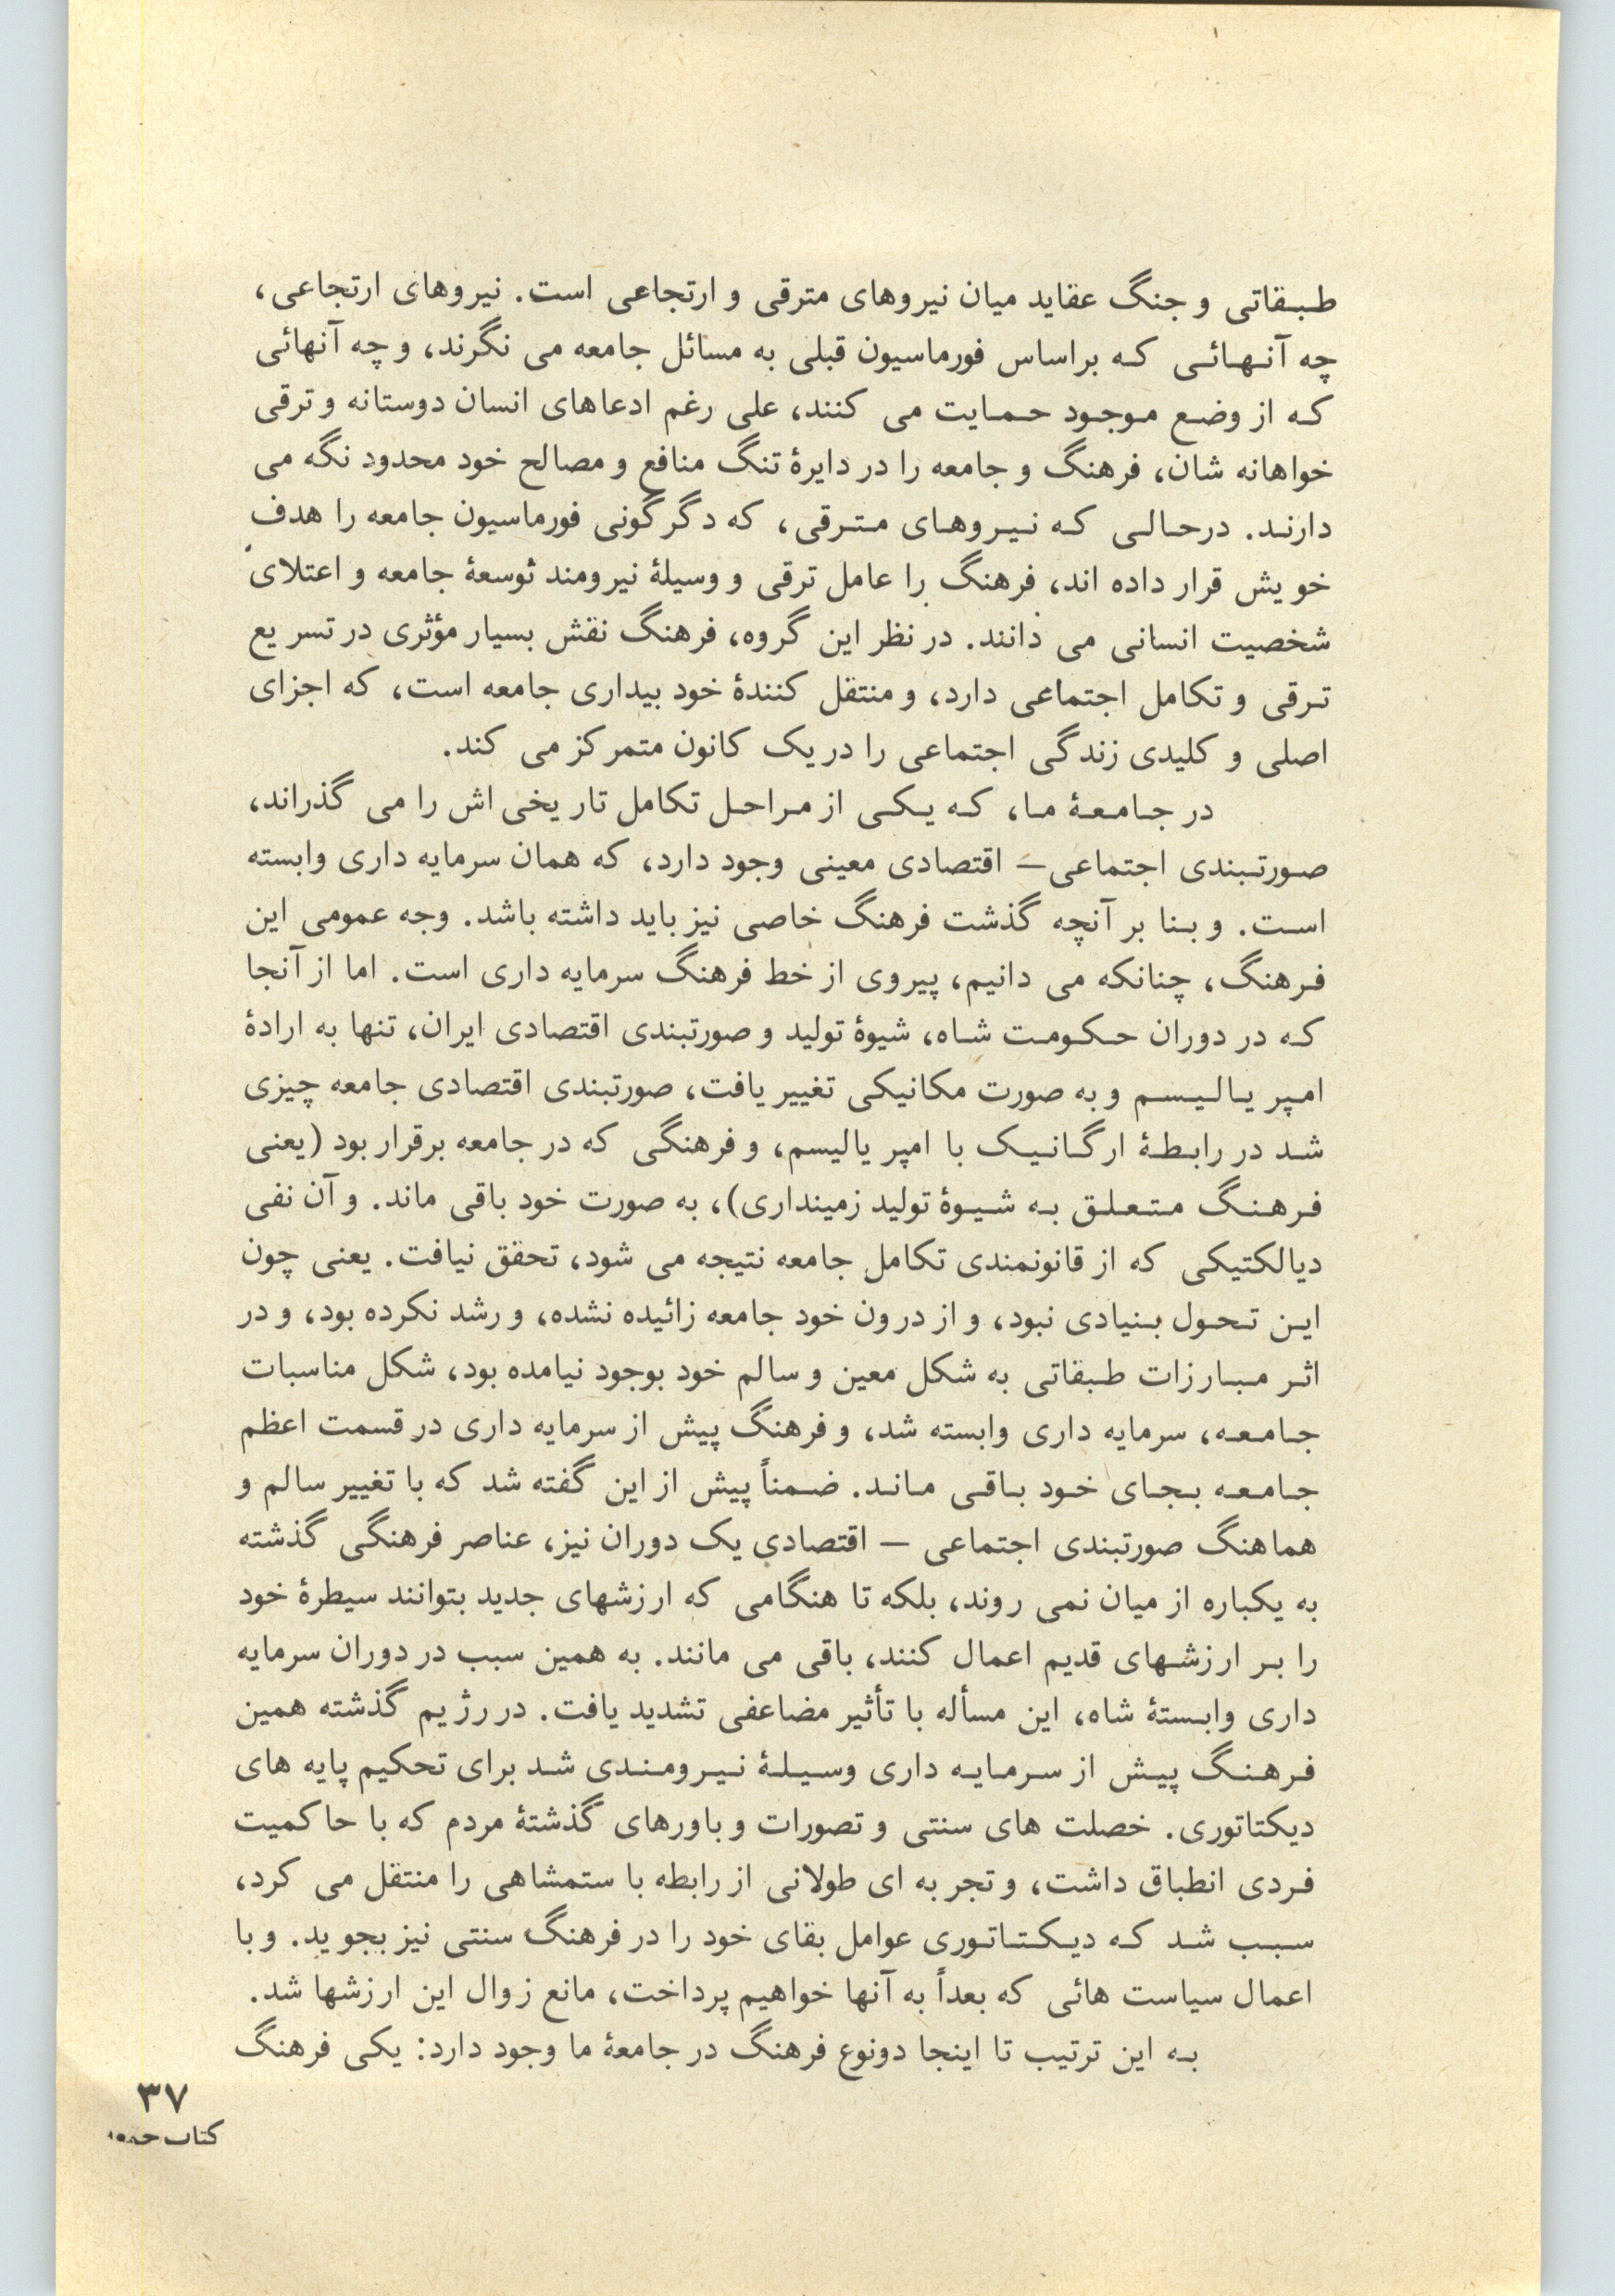 طبقاتی و جنگ عقاید میان نیروهای مترقی و ارتجاعی است. نیروهای ارتجاعی،
چه آنهائی که براساس فورماسیون قبلی به مسائل جامعه می نگرند، و چه آنهائی
که از وضع موجود حمایت می کنند، علی رغم ادعاهای انسان دوستانه و ترقی
خواهانه شان، فرهنگ و جامعه را در دایرهٔ تنگ منافع و مصالح خود محدود نگه می
دارند. درحالی که نیروهای مترقی، که دگرگونی فورماسیون جامعه را هدف
خویش قرار داده اند، فرهنگ را عامل ترقی و وسیلهٔ نیرومند توسعهٔ جامعه و اعتلای
شخصیت انسانی می دانند. در نظر این گروه، فرهنگ نقش بسیار مؤثری در تسریع
ترقی و تکامل اجتماعی دارد، و منتقل کنندهٔ خود بیداری جامعه است، که اجزای
اصلی و کلیدی زندگی اجتماعی را در یک کانون متمرکز می کند.
در جامعهٔ ما، که یکی از مراحل تکامل تاریخی اش را می گذراند،
صورتبندی اجتماعی– اقتصادی معینی وجود دارد، که همان سرمایه داری وابسته
است. و بنا بر آنچه گذشت فرهنگ خاصی نیز باید داشته باشد. وجه عمومی این
فرهنگ، چنانکه می دانیم، پیروی از خط فرهنگ سرمایه داری است. اما از آنجا
که در دوران حکومت شاه، شیوهٔ تولید و صورتبندی اقتصادی ایران، تنها به ارادهٔ
امپریالیسم و به صورت مکانیکی تغییر یافت، صورتبندی اقتصادی جامعه چیزی
شد در رابطهٔ ارگانیک با امپریالیسم، و فرهنگی که در جامعه برقرار بود (یعنی
فرهنگ متعلق به شیوهٔ تولید زمینداری)، به صورت خود باقی ماند. و آن نفی
دیالکتیکی که از قانونمندی تکامل جامعه نتیجه می شود، تحقق نیافت. یعنی چون
این تحول بنیادی نبود، و از درون خود جامعه زائیده نشده، و رشد نکرده بود، و در
اثر مبارزات طبقاتی به شکل معین و سالم خود بوجود نیامده بود، شکل مناسبات
جامعه، سرمایه داری وابسته شد، و فرهنگ پیش از سرمایه داری در قسمت اعظم
جامعه بجای خود باقی ماند. ضمناً پیش از این گفته شد که با تغییر سالم و
هماهنگ صورتبندی اجتماعی – اقتصادی یک دوران نیز، عناصر فرهنگی گذشته
به یکباره از میان نمی روند، بلکه تا هنگامی که ارزشهای جدید بتوانند سیطرهٔ خود
را بر ارزشهای قدیم اعمال کنند، باقی می مانند. به همین سبب در دوران سرمایه
داری وابستهٔ شاه، این مسأله با تأثیر مضاعفی تشدید یافت. در رژیم گذشته همین
فرهنگ پیش از سرمایه داری وسیلهٔ نیرومندی شد برای تحکیم پایه های
دیکتاتوری. خصلت های سنتی و تصورات و باورهای گذشتهٔ مردم که با حاکمیت
فردی انطباق داشت، و تجربه ای طولانی از رابطه با ستمشاهی را منتقل می کرد،
سبب شد که دیکتاتوری عوامل بقای خود را در فرهنگ سنتی نیز بجوید. و با
اعمال سیاست هائی که بعداً به آنها خواهیم پرداخت، مانع زوال این ارزشها شد.
به این ترتیب تا اینجا دونوع فرهنگ در جامعهٔ ما وجود دارد: یکی فرهنگ
۳۷
کتاب جمعه